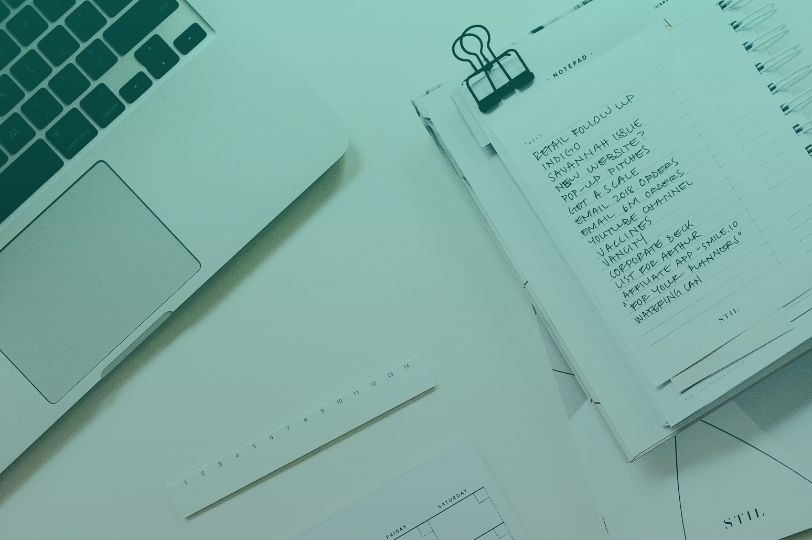 · NOTEPAD ·
RETAIL FOLLOW UP
INDIGO
SAVANNAH ISSUE
NEW WEBSITE?
POP-UP PITCHES
GET A SCALE
EMAIL 2018 ORDERS
EMAIL 6M ORDERS
YOUTUBE CHANNEL
VACCINES
VANCITY
CORPORATE DECK
LIST FOR ARTHUR
AFFILIATE APP - SMILE.IO
"FOR YOUR PLANNERS"
WATERING CAN
STIL
1 2 3 4 5 6 7 8 9 10 11 12 13 14
FRIDAY SATURDAY
STIL